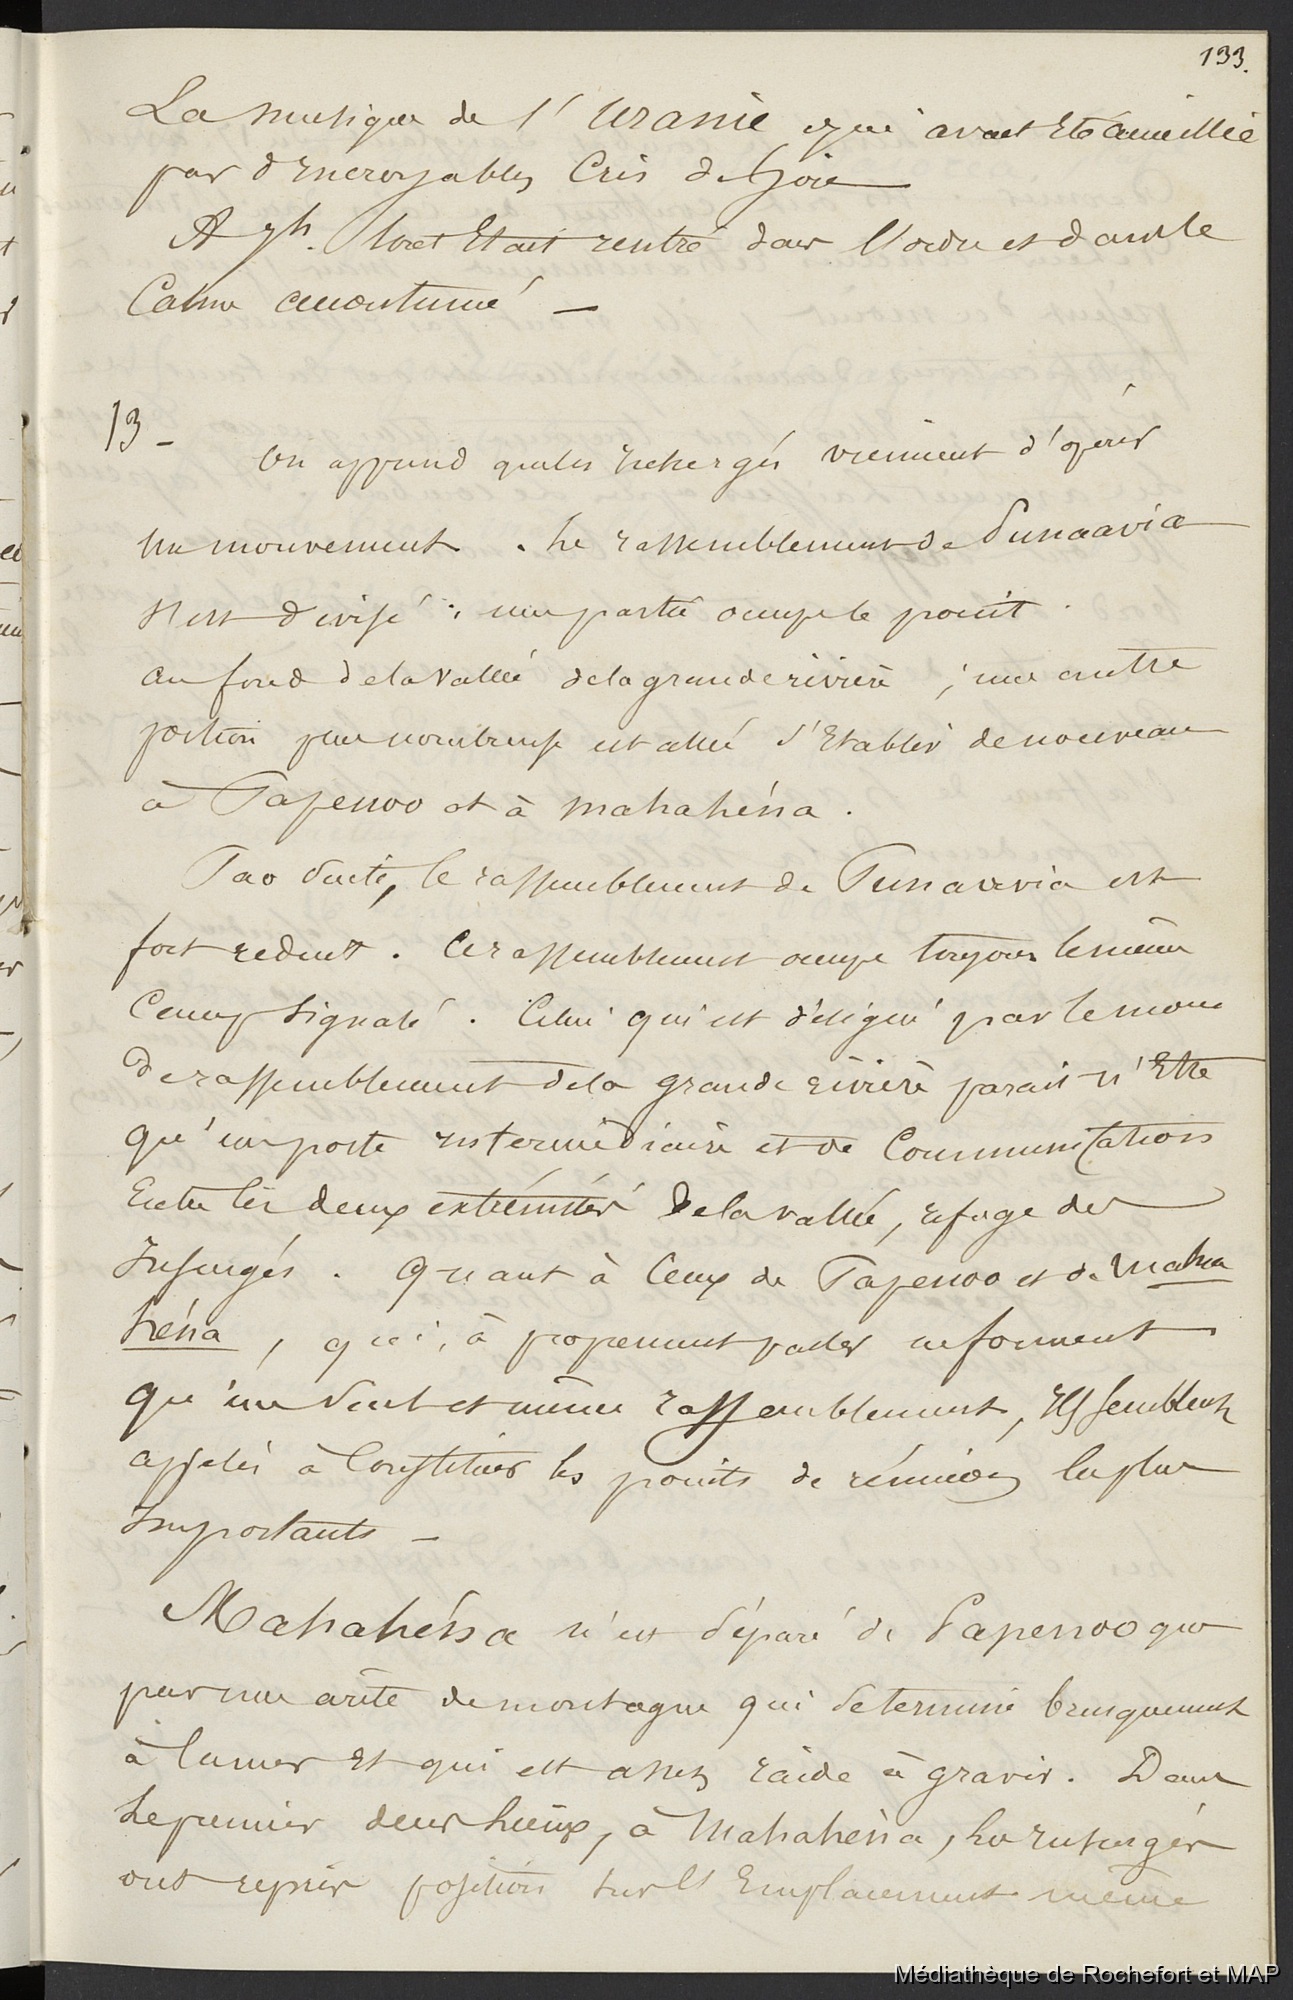 133.
La musique de l'Uranie qui avait été accueillie
par d'Incroyables Cris de joie
A 9h. tout était rentré dans l'ordre et dans le
Calme accoutumé —
13 -
On apprend que les Insurgés viennent d'opérer
un mouvement. Le rassemblement de Punaavia
s'est divisé : une partie occupe le point
au fond de la vallée de la grande rivière ; une autre
portion peu nombreuse est allée s'établir de nouveau
à Papenoo et à Mahahéna.
Par suite, le rassemblement de Punaavia est
fort réduit. Ce rassemblement occupe toujours le même
Camp signalé. Celui qui est désigné par le nom
de rassemblement de la grande rivière parait n'Etre
qu'un poste Intermédiaire et de Communications
Entre les deux extrémités de la vallée, refuge des
Insurgés. Quant à Ceux de Papenoo et de Maha
héna, qui, à proprement parler ne forment
qu'un seul et même rassemblement, Ils semblent
appelés à Constituer les points de réunion les plus
Importants —
Mahahéna n'est séparé de Papenoo que
par une arête de montagne qui se termine brusquement
à la mer Et qui est assez raide à gravir. Dans
le premier des lieux, à Mahahéna, les Insurgés
ont repris position sur l'Emplacement même
Médiathèque de Rochefort et MAP